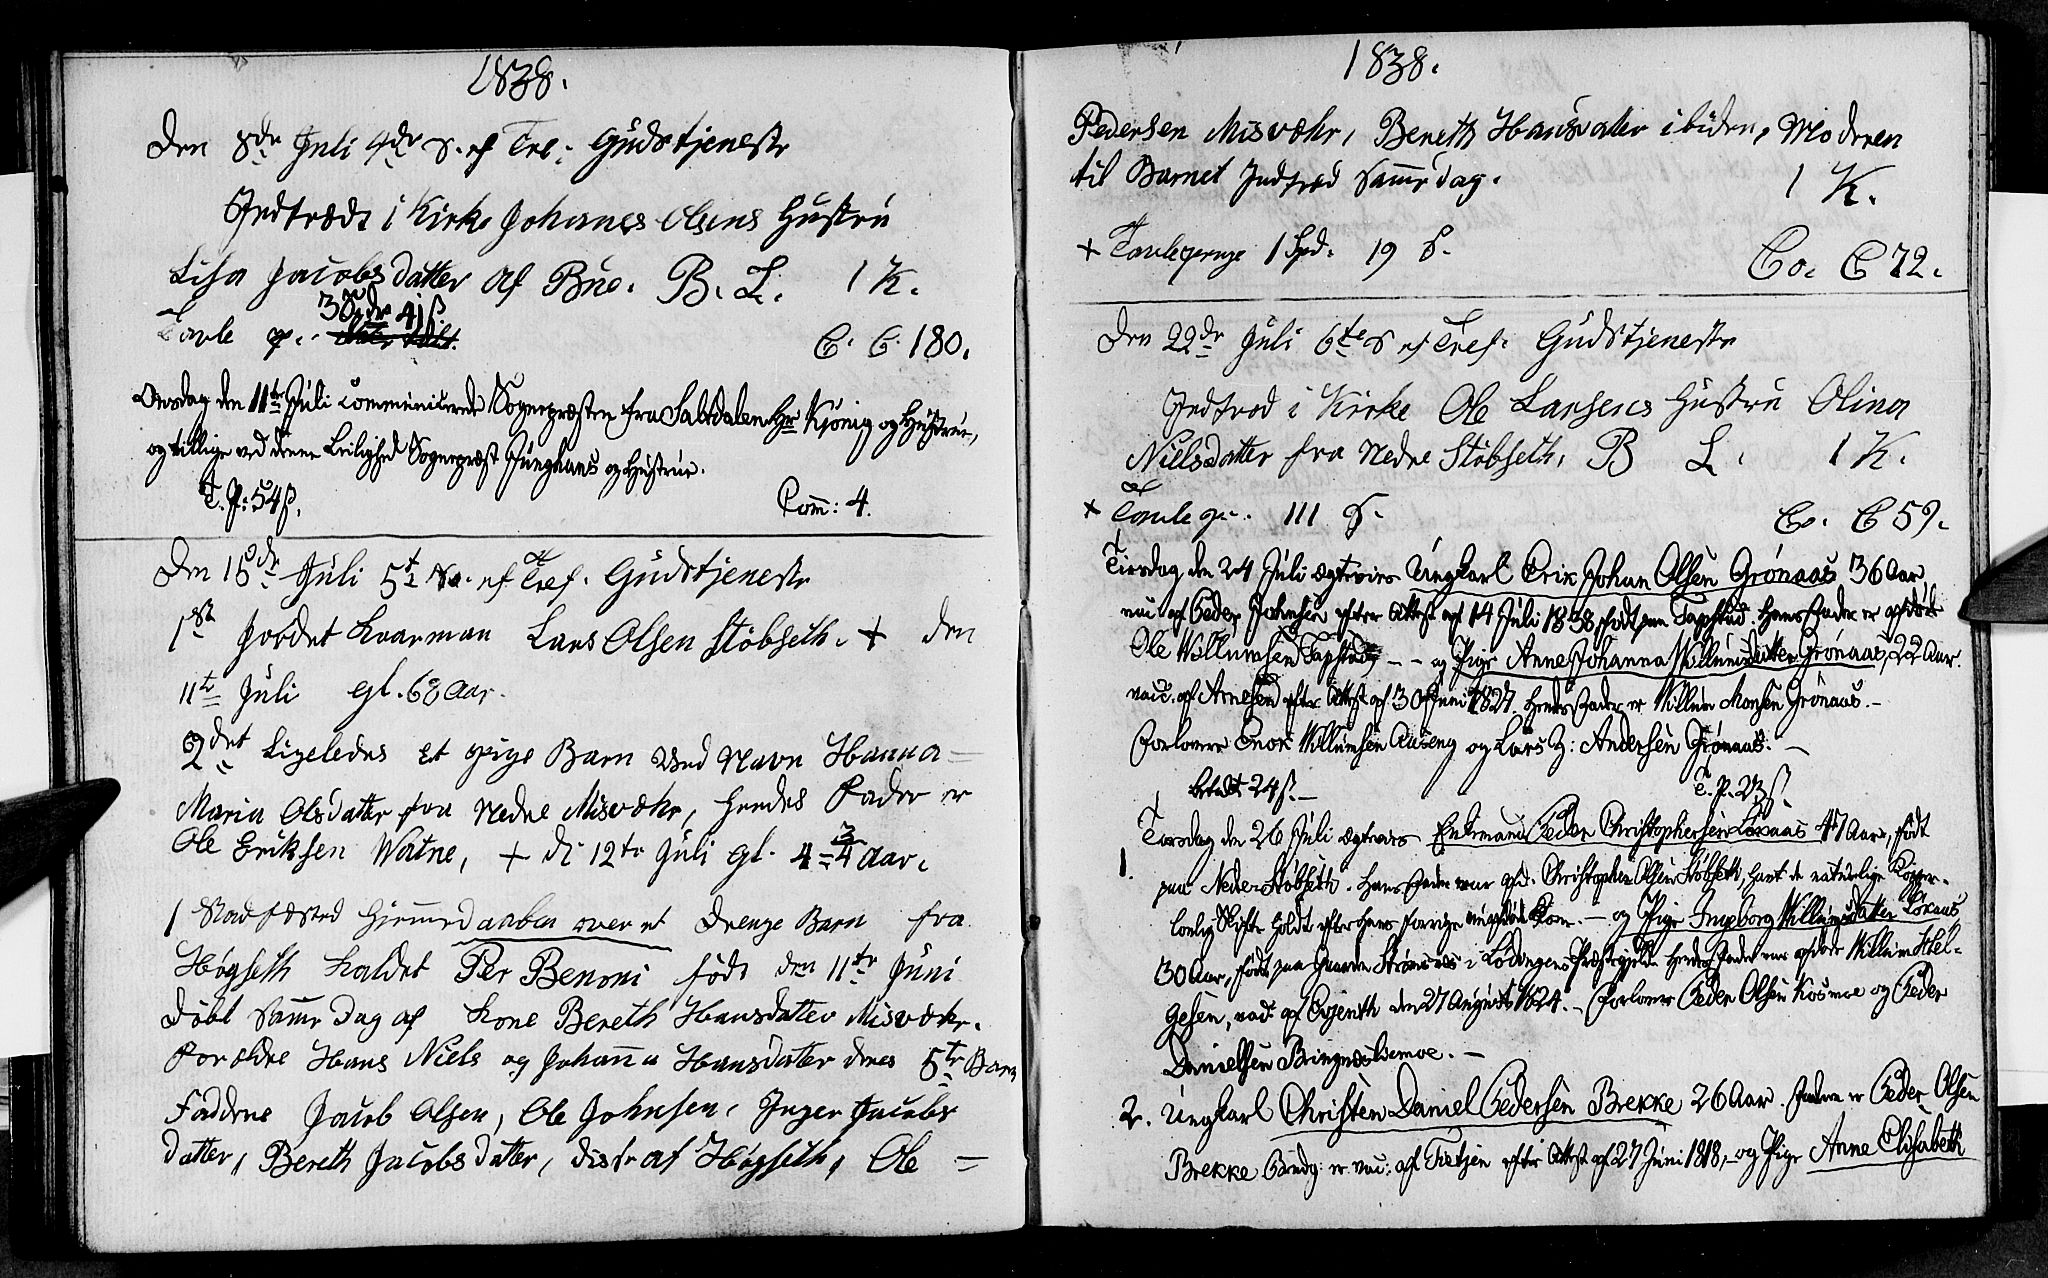 1838.
Den 8de Juli 4de S. ef Tre: Gudstjeneste
Indtrædt i Kirke Johanes Olsens Hustru
Lisa Jacobsdatter af Bue. B. L. 1 K.
30 41 ß
Tavle C. C. 180.
Onsdag den 11te Juli communicerede Sognepræsten fra Saltdalen Hr Kjönig og Hustrue,
og tillige ved denne Leilighed Sognepræst Junghans og Hustrue.
T. P: 54 ß. Com: 4.
Den 15de Juli 5te ef Tref. Gudstjeneste
1st Jordet Lars Olsen Stöbseth. + den
11te Juli gl. 68 Aar.
2det Ligeledes et pige Barn ved Navn Hanna
Maria Olsdatter fra Nedre Misvæhr, hendes Fader er
Ole Eriksen Watne, + d: 12te Juli gl. 4 3/4 Aar.
1 Stadfæsted hjemmedaaben over et Drenge Barn fra
Högseth kaldet Per Benoni födt den 11te Juni
döbt samme Dag af Kone Bereth Hansdatter Misvæhr.
Forældre Hans Niels og Johanna Hansdatter deres 5te Barn
Faddere Jacob Olsen, Ole Johnsen, Inger Jacobs
datter, Bereth Jacobsdatter, disse af Högseth, Ole =
1838.
Pedersen Misvæhr, Bereth Hansdatter ibiden, Moderen
til Barnet Indtræd samme dag. 1 K.
+ Tavlepenge 1 Spd. 19 ß. Co. C 72.
Den 22de Juli 6te S ef Tref. Gudstjeneste
Indtræd i Kirke Ole Larsens Hustru Olina
Nielsdatter fra Nedre Stöbseth, B L. 1 K.
+ Tavle p. 111 ß. Co. C 59.
Tirsdag den 24 Juli ægtevies Ungkarl Erik Johan Olsen Grönaas 36 Aar,
vac: af Peder Johnsen efter Attest af 14 Juli 1838, födt paa Tapstad. Hans Fader er afdöde
Ole Willumsen Tapstad -- og Pige Anne Johanna Willumsdatter Grönaas, 22 Aar.
vac: af Arnesen efter Attest af 30 Juni 1827. Hendes Fader er Willum Monsen Grönaas. -
Forlovere Enok Willumsen Aaseng og Lars Z: Andersen Grönaas. -
betalt 24 ß. - T. P. 23 ß.
Torsdag den 26 Juli ægtevies Enkemand Peder Christophersen Löxaas 47 Aar, födt
1. paa Neder Stöbseth. Hans Fader var afd. Christopher Olsen Stöbseth, havt de naturlige Kopper.
lovlig Skifte holdt efter hans forrige afdöde Kone. - og Pige Ingeborg Willumsdatter Löxaas,
30 Aar, födt paa Gaarden Strömnæs i Lödingens Præstegjeld. Hendes Fader var afdöde Willum Hel-
gesen, vac: af den 27 August 1824. - Forlovere Peder Olsen Kosmoe og Peder
Danielsen Bringnesliemoe. -
2. Ungkarl Christen Daniel Pedersen Brekke 26 Aar. Faderen er Peder Olsen
Brekke Gamdg: er vac: af Tietjen efter Attest af 27 Juni 1818, - og Pige Anne Elisabeth